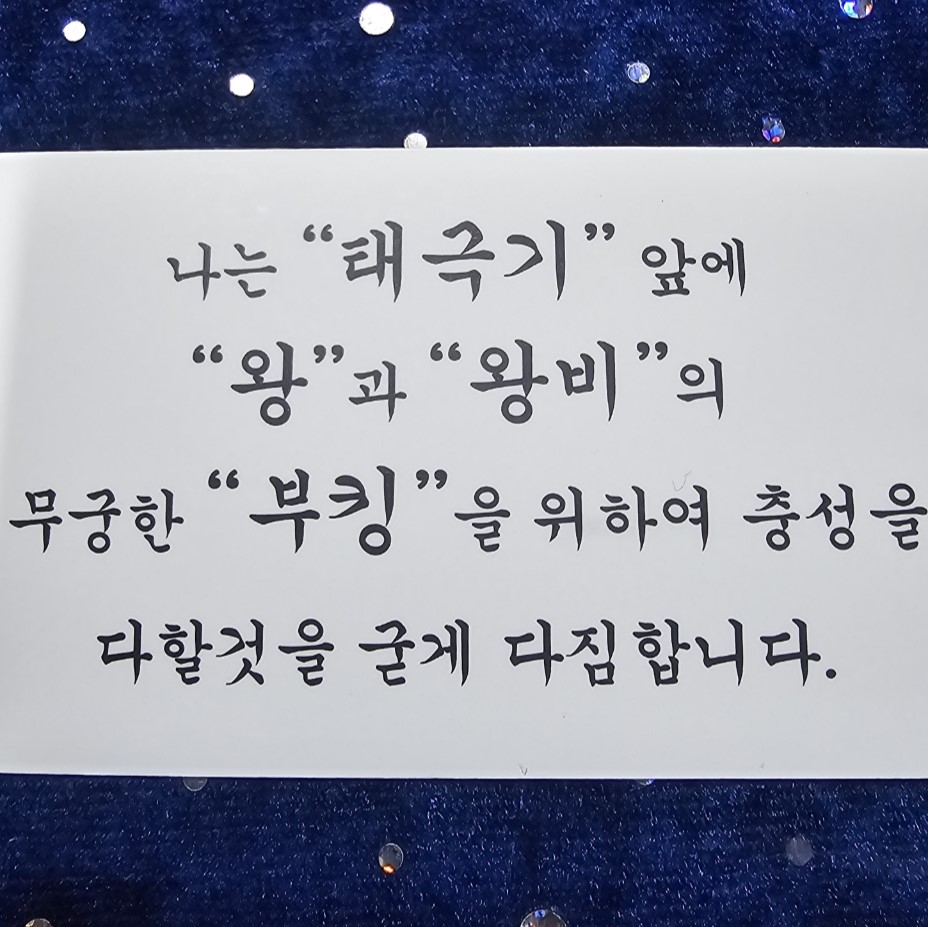 나는 “태극기” 앞에
“왕”과 “왕비”의
무궁한 “부킹”을 위하여 충성을
다할것을 굳게 다짐합니다.